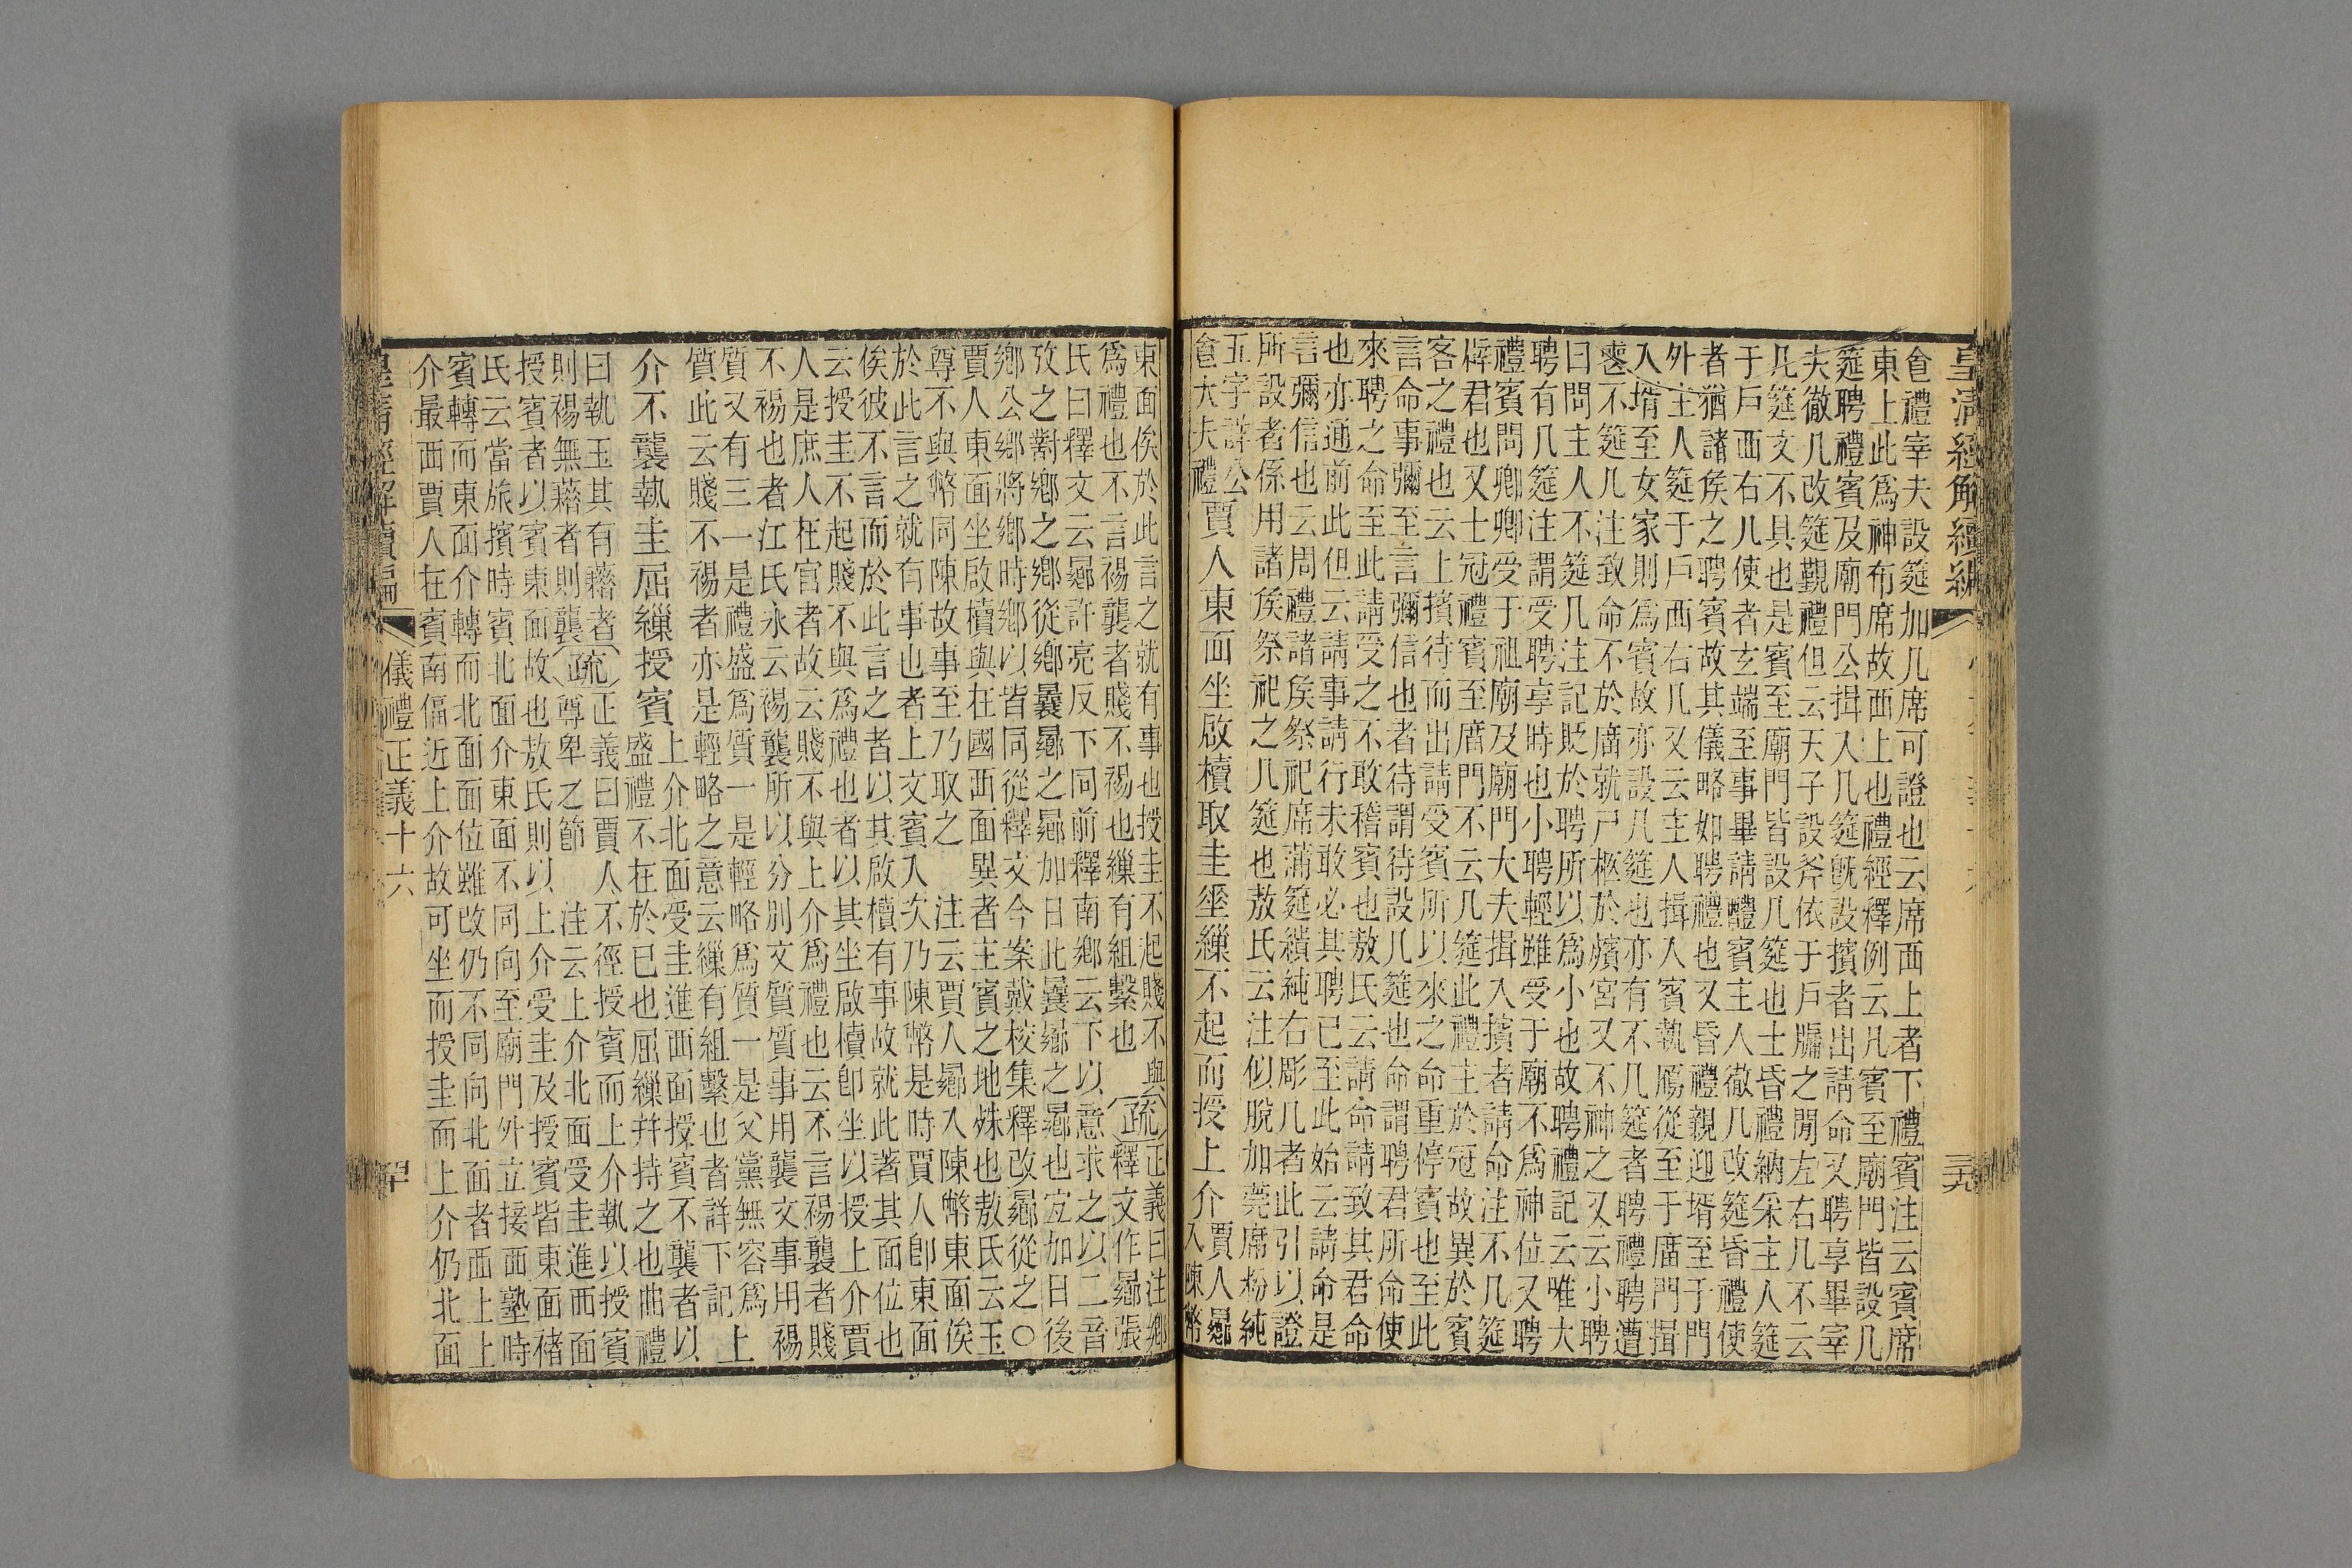 皇清經解續編
三九
食禮宰夫設筵加几席可證也云席西上者下禮賓注云賓席
東上此為神布席故西上也禮經釋例云凡賓至廟門皆設几
筵聘禮賓及廟門公揖入几筵既設擯者出請命又聘享畢宰
夫徹几改筵覲禮但云天子設斧依于戶牖之閒左右几不云
几筵文不具也是賓至廟門皆設几筵也士昏禮納采主人筵
于戶西右几使者玄端至事畢請醴賓主人徹几改筵昏禮使
者猶諸矦之聘賓故其儀略如聘禮也又昏禮親迎壻至于門
外主人筵于戶西右几又云主人揖入賓執鴈從至于廟門揖
入壻至女家則為賓故亦設几筵也亦有不几筵者聘禮聘遭
喪不筵几注致命不於廟就尸柩於殯宮又不神之又云小聘
曰問主人不筵几注記貶於聘所以為小也故聘禮記云唯大
聘有几筵注謂受聘享時也小聘輕雖受于廟不為神位又聘
禮賓問卿卿受于祖廟及廟門大夫揖入擯者請命注不几筵
辟君也又士冠禮賓至廟門不云几筵此禮主於冠故異於賓
客之禮也云上擯待而出請受賓所以來之命重停賓也至此
言命事彌至言彌信也者待謂待設几筵也命謂聘君所命使
來聘之命至此請受之不敢稽賓也敖氏云請命請致其君命
也亦通前此但云請事請行未敢必其聘已至此始云請命是
言彌信也云周禮諸矦祭祀席蒲筵繢純右彫几者此引以證
所設者係用諸矦祭祀之几筵也敖氏云注似脫加莞席紛純
五字詳公
食大夫禮
賈人東面坐啟櫝取圭垂繅不起而授上介
賈人鄉
入陳幣
東面俟於此言之就有事也授圭不起賤不與
為禮也不言裼襲者賤不裼也繅有組繫也
疏
正義曰注鄉
釋文作曏張
氏曰釋文云曏許亮反下同前釋南鄉云下以意求之以二音
攷之對鄉之鄉從鄉曩曏之曏加日此曩曏之曏也宜加日後
鄉公鄉將鄉時鄉以皆同從釋文今案戴校集釋改曏從之〇
賈人東面坐啟櫝與在國西面異者主賓之地殊也敖氏云玉
尊不與幣同陳故事至乃取之
注云賈人曏入陳幣東面俟
於此言之就有事也者上文賓入次乃陳幣是時賈人卽東面
俟彼不言而於此言之者以其啟櫝有事故就此著其面位也
云授圭不起賤不與為禮也者以其坐啟櫝卽坐以授上介賈
人是庶人在官者故云賤不與上介為禮也云不言裼襲者賤
不裼也者江氏永云裼襲所以分別文質質事用襲文事用裼
質又有三一是禮盛為質一是輕略為質一是父黨無容為上
質此云賤不裼者亦是輕略之意云繅有組繫也者詳下記
介不襲執圭屈繅授賓
上介北面受圭進西面授賓不襲者以
盛禮不在於已也屈繅幷持之也曲禮
曰執玉其有藉者
則裼無藉者則襲
疏
正義曰賈人不徑授賓而上介執以授賓
尊卑之節
注云上介北面受圭進西面
授賓者以賓東面故也敖氏則以上介受圭及授賓皆東面褚
氏云當旅擯時賓北面介東面不同向至廟門外立接西塾時
賓轉而東面介轉而北面面位雖改仍不同向北面者西上上
介最西賈人在賓南偪近上介故可坐而授圭而上介仍北面
儀禮正義十六